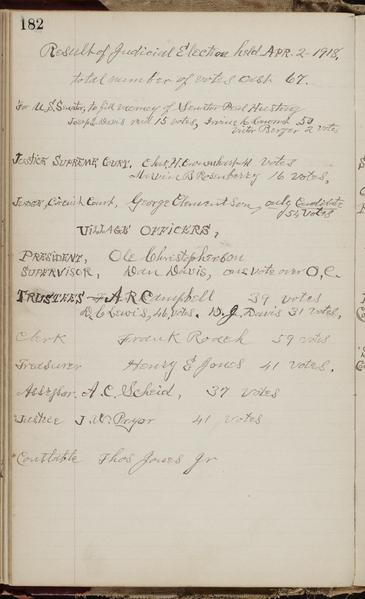 182
Result of Judicial Election held APR. 2 1918,
total number of votes cast 67.
For U.S. Senator, to fill vacancy of Senator Paul Husting
Joseph Davis rec'd 15 votes, Irvine L Lenroot 50
Victor Berger 2 votes
JUSTICE SUPREME COURT, Chas. H. Crownhart votes
Marvin B Rosenberry 16 votes,
JUDGE, Circuit Court, George Clementson, only Candidate
54 votes
VILLAGE OFFICERS,
PRESIDENT, Ole Christopherson
SUPERVISOR, Dan Davis, one vote over O, C.
TRUSTEES A R Campbell 39 votes
D. C Lewis, 46 votes. D. J. Davis 31 votes,
Clerk Frank Roach 59 votes
Treasurer Henry E Jones 41 votes,
Assessor. A. C. Scheid, 37 votes
Justice J. W. Pryor 41 votes
Constable Thos Jones Jr